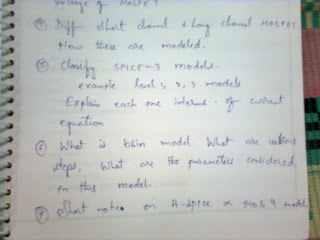 voltage of MOSFET
④ Diff short channel & long channel MOSFET.
How these are modeled.
⑤ Classify SPICE-3 models.
example level 1, 2, 3 models
Explain each one interms of current
equation
⑥ What is bsim model What are various
steps, What are the parameters considered
in this model.
⑦ Short notes on H-spice or MOS 9 model